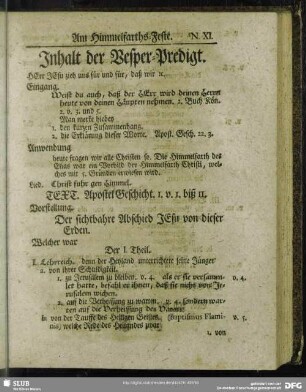 Am Himmelfarths-Feste. N. XI.
Inhalt der Vesper-Predigt.
HErr JEsu zieh uns für und für, daß wir ꝛc.
Eingang.
Weist du auch, daß der HErr wird deinen Herrn
heute von deinen Häupten nehmen. 2. Buch Kön.
2. v. 3. und 5.
Man merke hiebey
1. den kurzen Zusammenhang.
2. die Erklärung dieser Worte. Apost. Gesch. 22. 3.
Anwendung
heute fragen wir alle Christen so. Die Himmelfarth des
Elias war ein Vorbild der Himmelfarth Christi, welches
mit 5. Gründen erwiesen wird.
Lied. Christ fuhr gen Himmel.
TEXT. Apostel Geschicht. 1. v. 1. biß 11.
Vorstellung.
Der sichtbahre Abschied JEsu von dieser
Erden.
Welcher war
Der I. Theil.
I. Lehrreich. denn der Heyland unterrichtete seine Jünger
a. von ihrer Schuldigkeit.
1. zu Jerusalem zu bleiben. v. 4. als er sie versammlet v. 4.
hatte, befahl er ihnen, daß sie nicht von Jerusalem
wichen.
2. auf die Verheissung zu warten. v. 4. sondern warten
auf die Verheissung des Vaters.
b. von der Tauffe des Heiligen Geistes. (Baptismus Flaminis) v. 5.
welche Rede des Heylandes zwar
1. von
SLUB